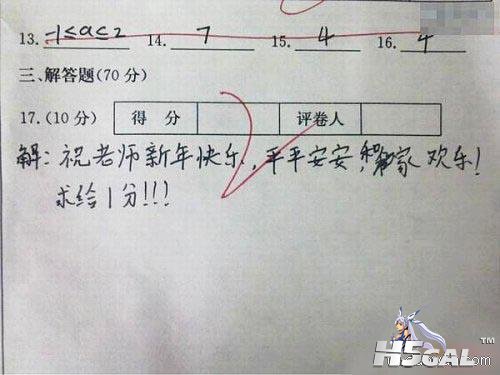 13. -1≤a≤2 14. 7 15. 4 16. 4
三、解答题(70分)
17.(10分) 得 分 评卷人
解：祝老师新年快乐，平平安安，阖家欢乐！
求给1分!!!
H5GAL™